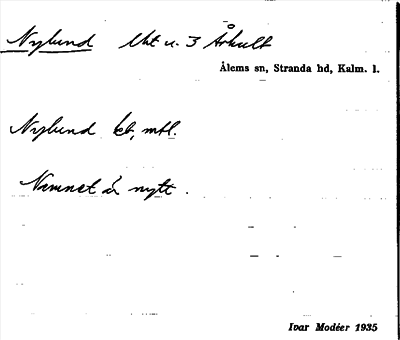 Nylund lht u. 3 Århult
Ålems sn, Stranda hd, Kalm. l.
Nylund lht, mtl.
Namnet är nytt.
Ivar Modéer 1935